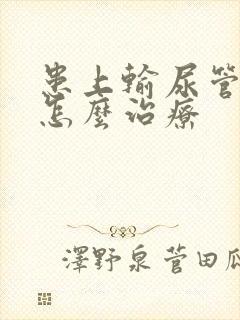 患上輸尿管
怎麼治療
澤野泉 菅田